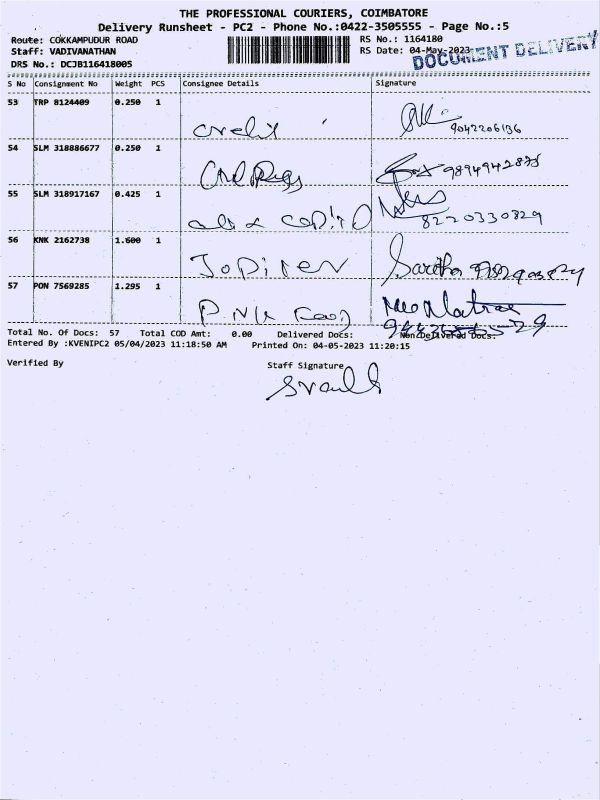 THE PROFESSIONAL COURIERS, COIMBATORE
Delivery Runsheet - PC2 - Phone No.:0422-3505555 - Page No.:5
Route: COKKAMPUDUR ROAD RS No.: 1164180
Staff: VADIVANATHAN RS Date: 04-May-2023
DRS No.: DCJB116418005 DOCUMENT DELIVERY
S No Consignment No Weight PCS Consignee Details Signature
53 TRP 8124409 0.250 1
credit 9042206136
54 SLM 318886677 0.250 1
55 SLM 318917167 0.425 1
8220330829
56 KNK 2162738 1.600 1
Jopiter Saritha
57 PON 7569285 1.295 1
Total No. Of Docs: 57 Total COD Amt: 0.00 Delivered Docs: Non Delivered Docs:
Entered By :KVENIPC2 05/04/2023 11:18:50 AM Printed On: 04-05-2023 11:20:15
Verified By Staff Signature